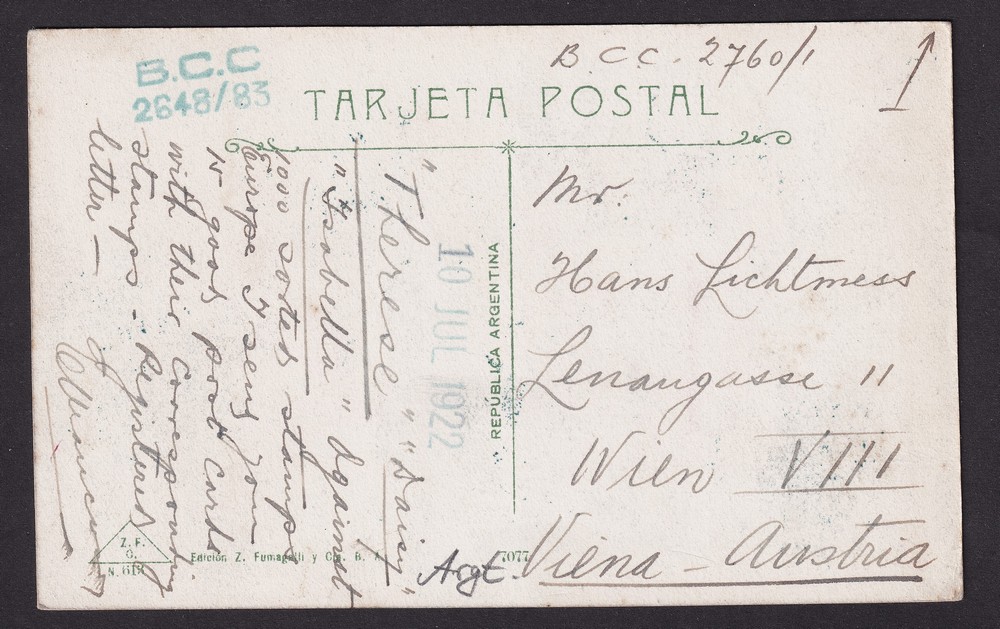 B.C.C
2648/83
B.C.C. 2760/1
TARJETA POSTAL
"Therese" "Daisy"
"Isabella" Against
1000 sorted stamps
Europe I send you
15 good post cards
with their corresponding
stamps - Registered
letter -
10 JUL 1922
REPÚBLICA ARGENTINA
Mr.
Hans Lichtmess
Lenaugasse 11
Wien VIII
Viena - Austria
Z. F.
G.
N. 613
Edición Z. Fumagalli y Cía. B. A.
7077
Argt.